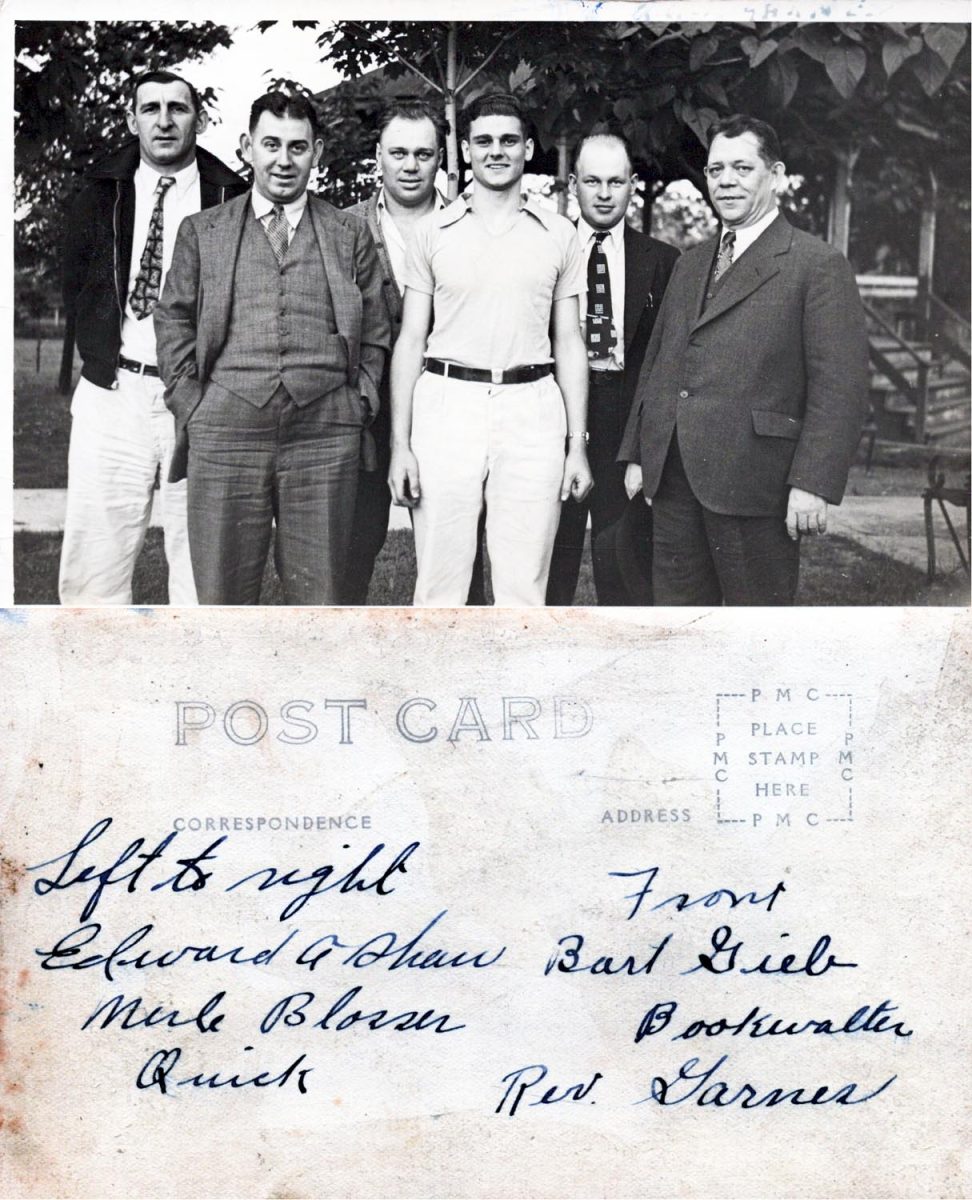 POST CARD
PMC
PLACE
STAMP
HERE
PMC
PMC
PMC
CORRESPONDENCE
ADDRESS
Left to right
Edward A Shaw
Merle Blosser
Quick
Front
Bart Gieb
Bookwalter
Rev. Garnes